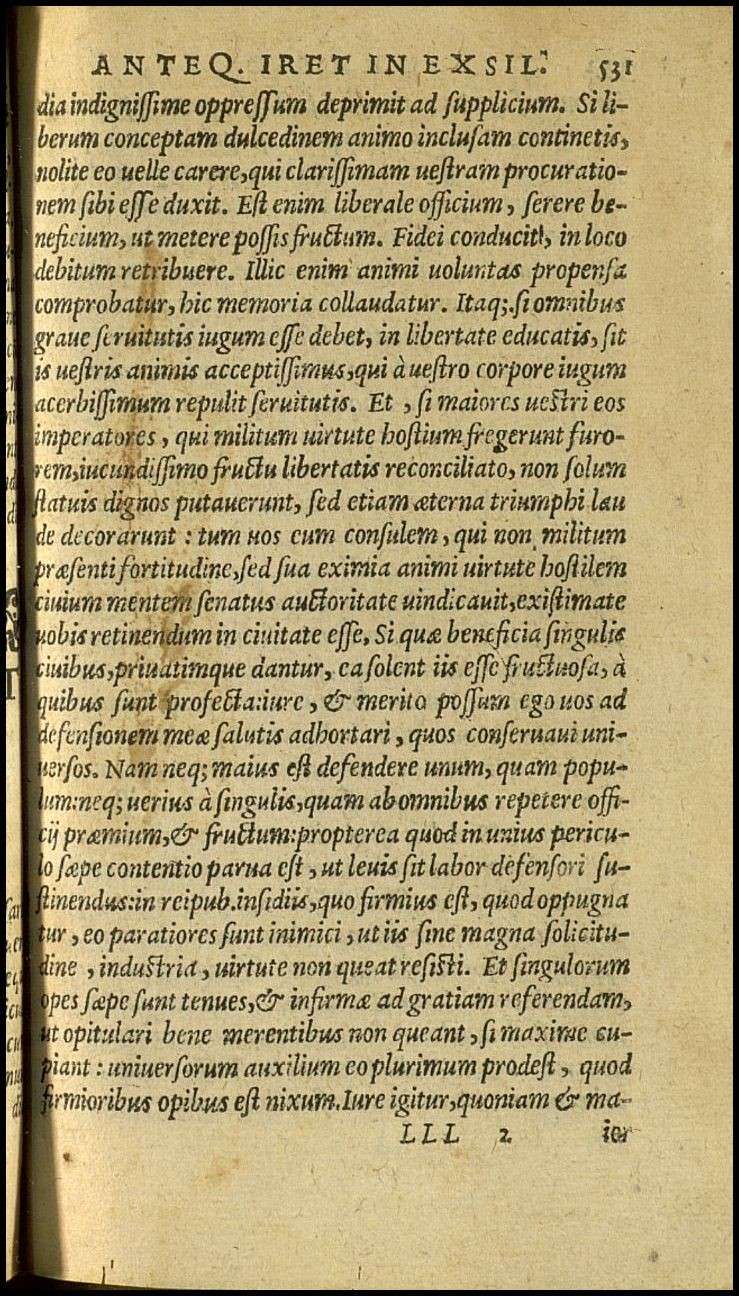 ANTEQ. IRET IN EXSIL. 531
dia indignißime oppreßum deprimit ad supplicium. Si li-
berum conceptam dulcedinem animo inclusam continetis,
nolite eo uelle carere, qui clarißimam uestram procuratio-
nem sibi esse duxit. Est enim liberale officium, serere be-
neficium, ut metere poßis fructum. Fidei conducit, in loco
debitum retribuere. Illic enim animi uoluntas propensa
comprobatur, hic memoria collaudatur. Itaq;. si omnibus
graue seruitutis iugum esse debet, in libertate educatis, sit
is uestris animis acceptißimus, qui à uestro corpore iugum
acerbißimum repulit seruitutis. Et, si maiores uestri eos
imperatores, qui militum uirtute hostium fregerunt furo-
rem, iucundißimo fructu libertatis reconciliato, non solum
statuis dignos putauerunt, sed etiam æterna triumphi lau
de decorarunt: tum uos eum consulem, qui non militum
præsenti fortitudine, sed sua eximia animi uirtute hostilem
ciuium mentem senatus auctoritate uindicauit, existimate
uobis retinendum in ciuitate esse, Si quæ beneficia singulis
ciuibus, priuatimque dantur, ea solent iis esse fructuosa, à
quibus sunt profecta: iure, & merito possum ego uos ad
defensionem meæ salutis adhortari, quos conseruaui uni-
uersos. Nam neq; maius est defendere unum, quam popu-
lum: neq; uerius à singulis, quam ab omnibus repetere offi-
cij præmium, & fructum: propterea quod in unius pericu-
lo sæpe contentio parua est, ut leuis sit labor defensori su-
stinendus: in reipub. insidiis, quo firmius est, quod oppugna
tur, eo paratiores sunt inimici, ut iis sine magna solicitu-
dine, industria, uirtute non queat resisti. Et singulorum
opes sæpe sunt tenues, & infirmæ ad gratiam referendam,
ut opitulari bene merentibus non queant, si maxime cu-
piant: uniuersorum auxilium eo plurimum prodest, quod
firmioribus opibus est nixum. Iure igitur, quoniam & ma-
LLL 2 ior